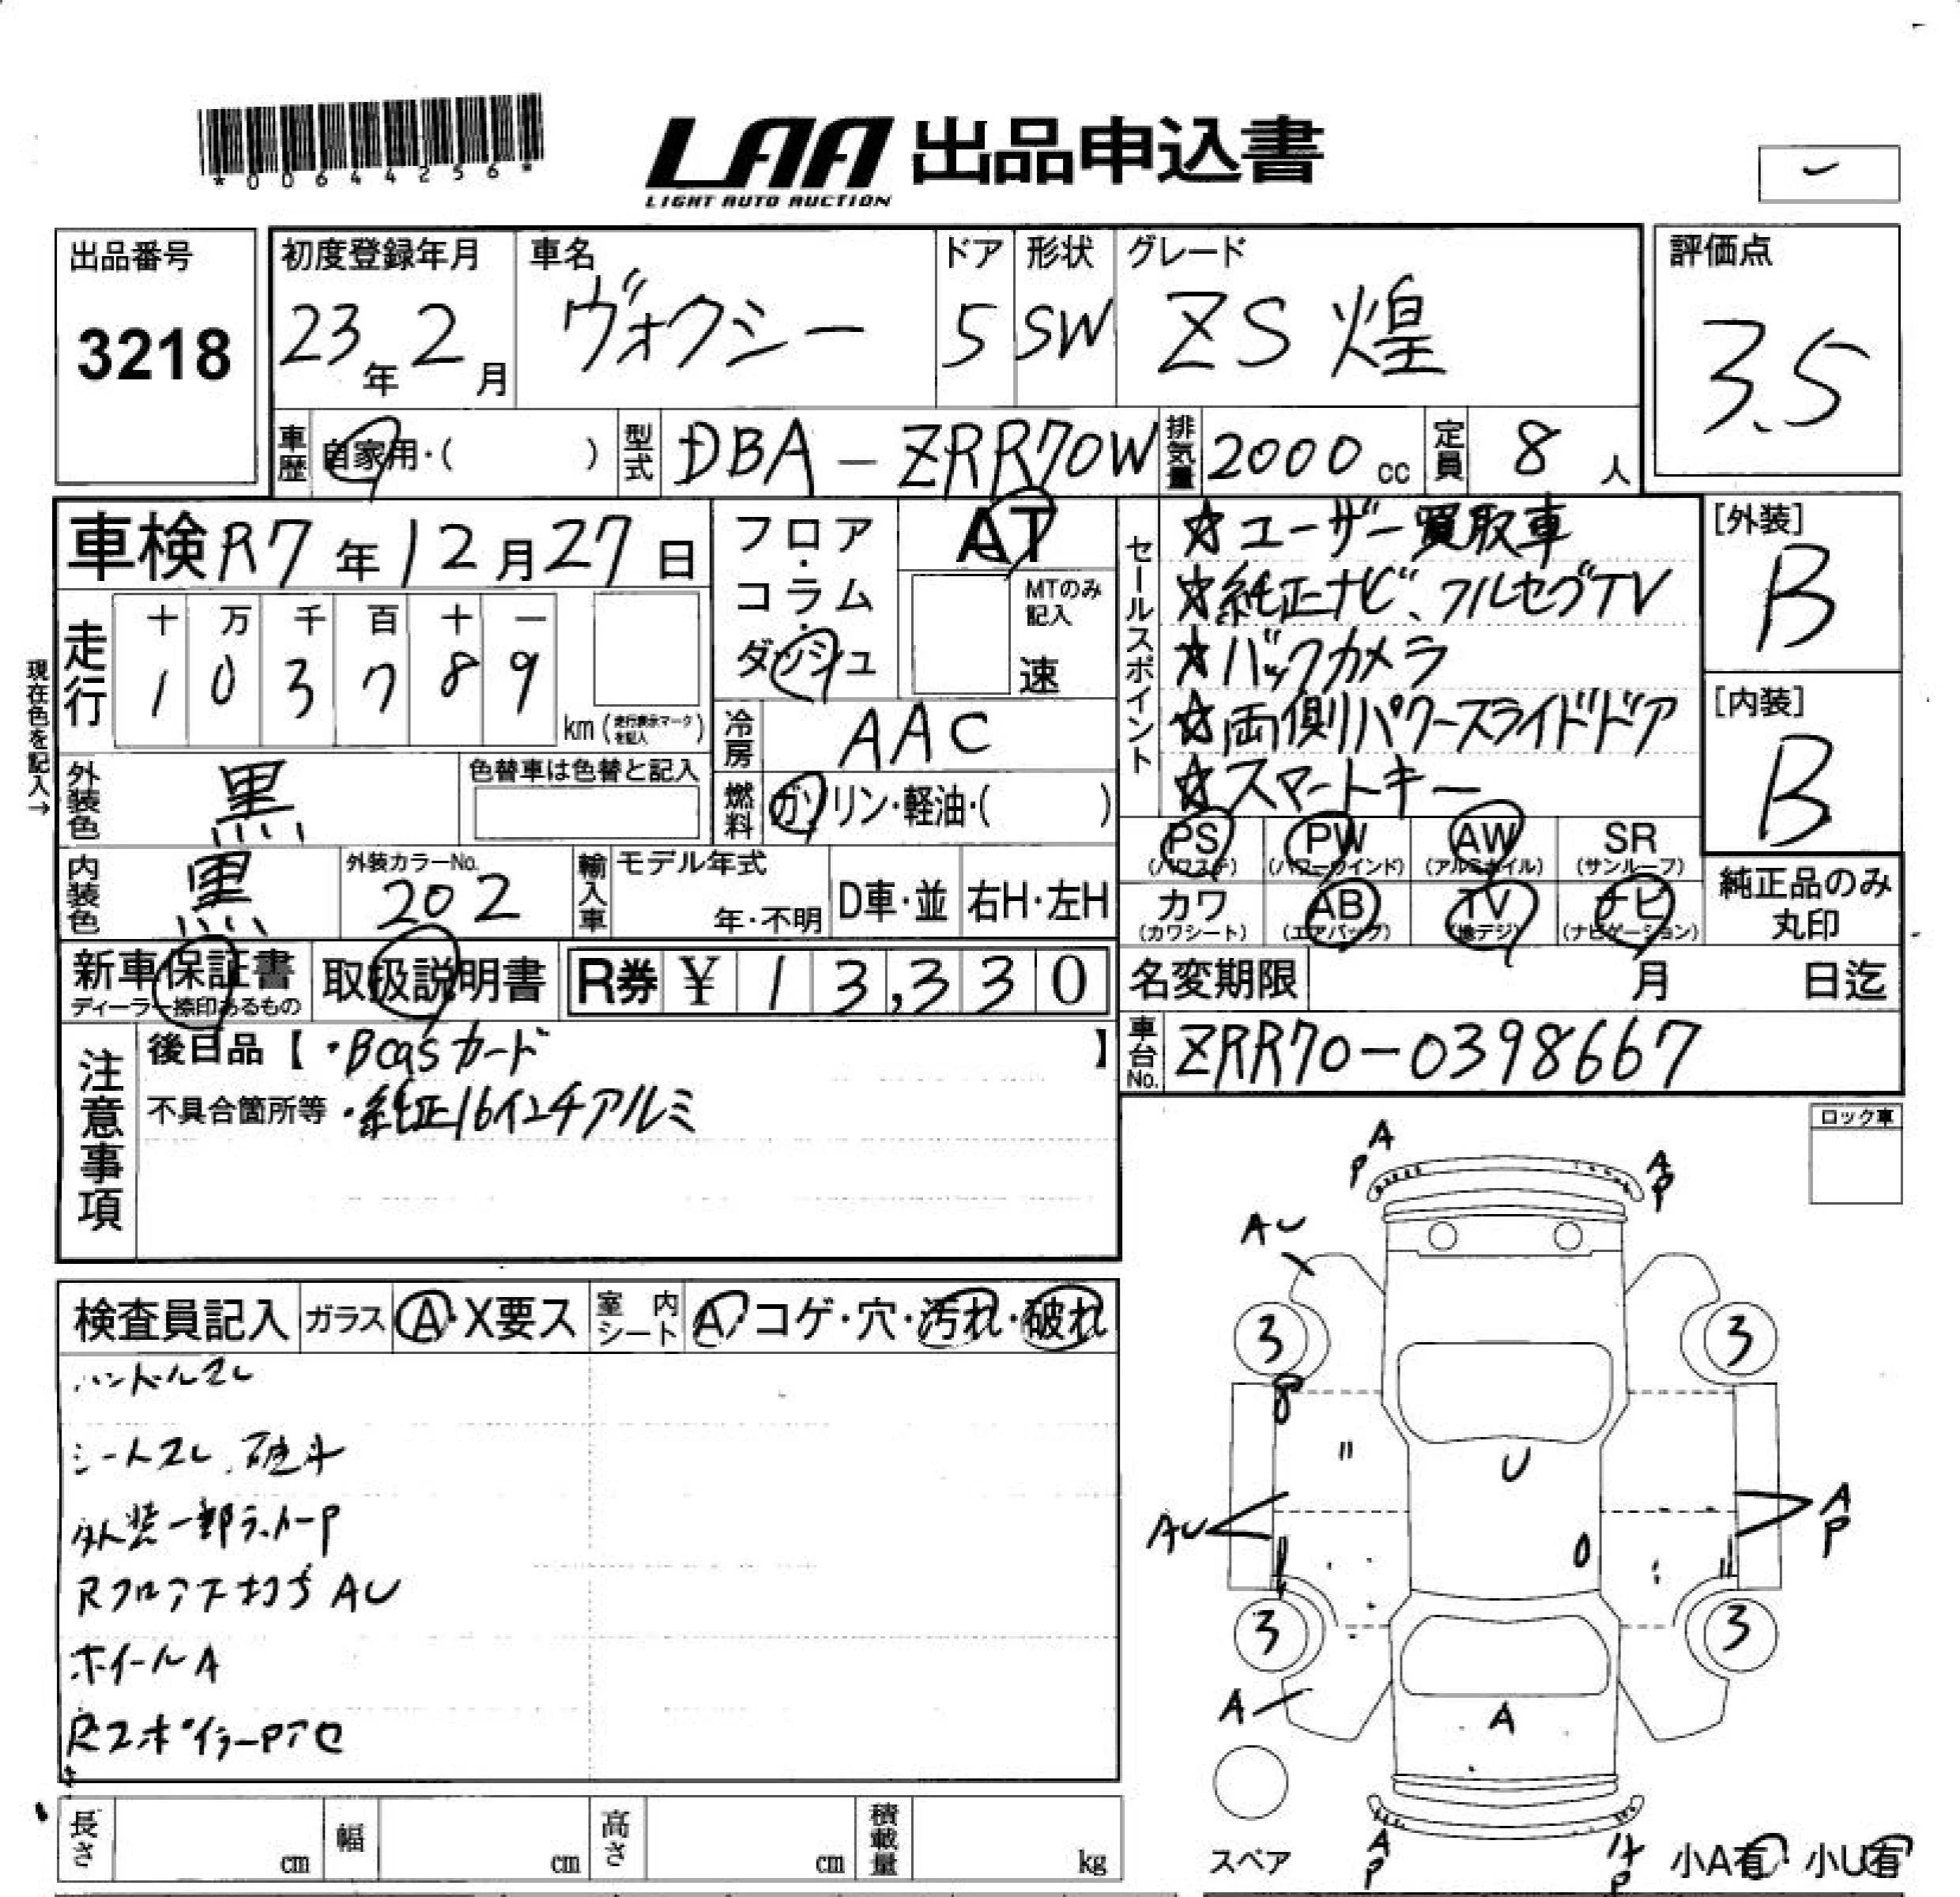 *00644256*
LAA 出品申込書
LIGHT AUTO AUCTION
出品番号
3218
初度登録年月
23年2月
車名
ヴォクシー
ドア
5
形状
SW
グレード
ZS 煌
評価点
3.5
車歴 自家用・( )
型式 DBA-ZRR70W
排気量 2000 cc
定員 8 人
車検 R7年12月27日
フロア・コラム・ダッシュ
AT
MTのみ記入
速
セールスポイント
☆ユーザー買取車
☆純正ナビ、フルセグTV
☆バックカメラ
☆両側パワースライドドア
☆スマートキー
[外装]
B
[内装]
B
現在色を記入→
走行
十 万 千 百 十 一
1 0 3 7 8 9
km (走行表示マークを記入)
冷房 AAC
燃料 ガソリン・軽油・( )
外装色 黒
色替車は色替と記入
内装色 黒
外装カラーNo.
202
輸入車
モデル年式
年・不明
D車・並
右H・左H
PS (パワステ)
PW (パワーウインド)
AW (アルミホイル)
SR (サンルーフ)
カワ (カワシート)
AB (エアバッグ)
TV (地デジ)
ナビ (ナビゲーション)
純正品のみ丸印
新車保証書
ディーラー捺印あるもの
取扱説明書
R券 ¥ 13,330
名変期限 月 日迄
車台No. ZRR70-0398667
注意事項
後日品【・Bcasカード 】
不具合箇所等・純正16インチアルミ
ロック車
検査員記入
ガラス A・X要ス
室内シート A コゲ・穴・汚れ・破れ
ハンドルスレ
シートスレ、破レ
外装一部ラッカーP
Rフロア下打ち AU
ホイールA
RスポイラーPアセ
A
P
A
P
AU
3
3
U
AU
A
P
3
3
A
A
スペア
A
P
P
小A有・小U有
長さ cm
幅 cm
高さ cm
積載量 kg